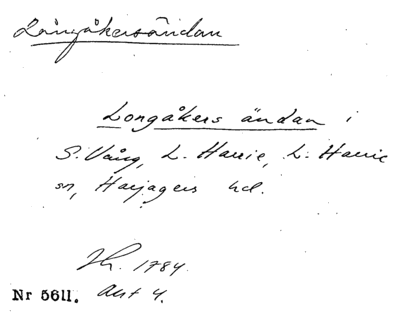 Långåkersändan
Longåkers ändan i
S. Vång, L. Harrie, L. Harrie
sn, Harjagers hd.
1784.
Nr 5611. Akt 4.